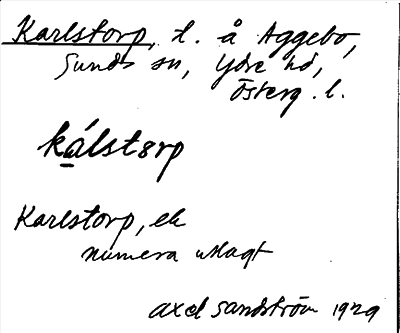 Karlstorp, t. å Aggebo,
Sunds sn, Ydre hd,
Österg. l.
kálstorp
Karlstorp, ek
numera utlagt
Axel Sandström 1929